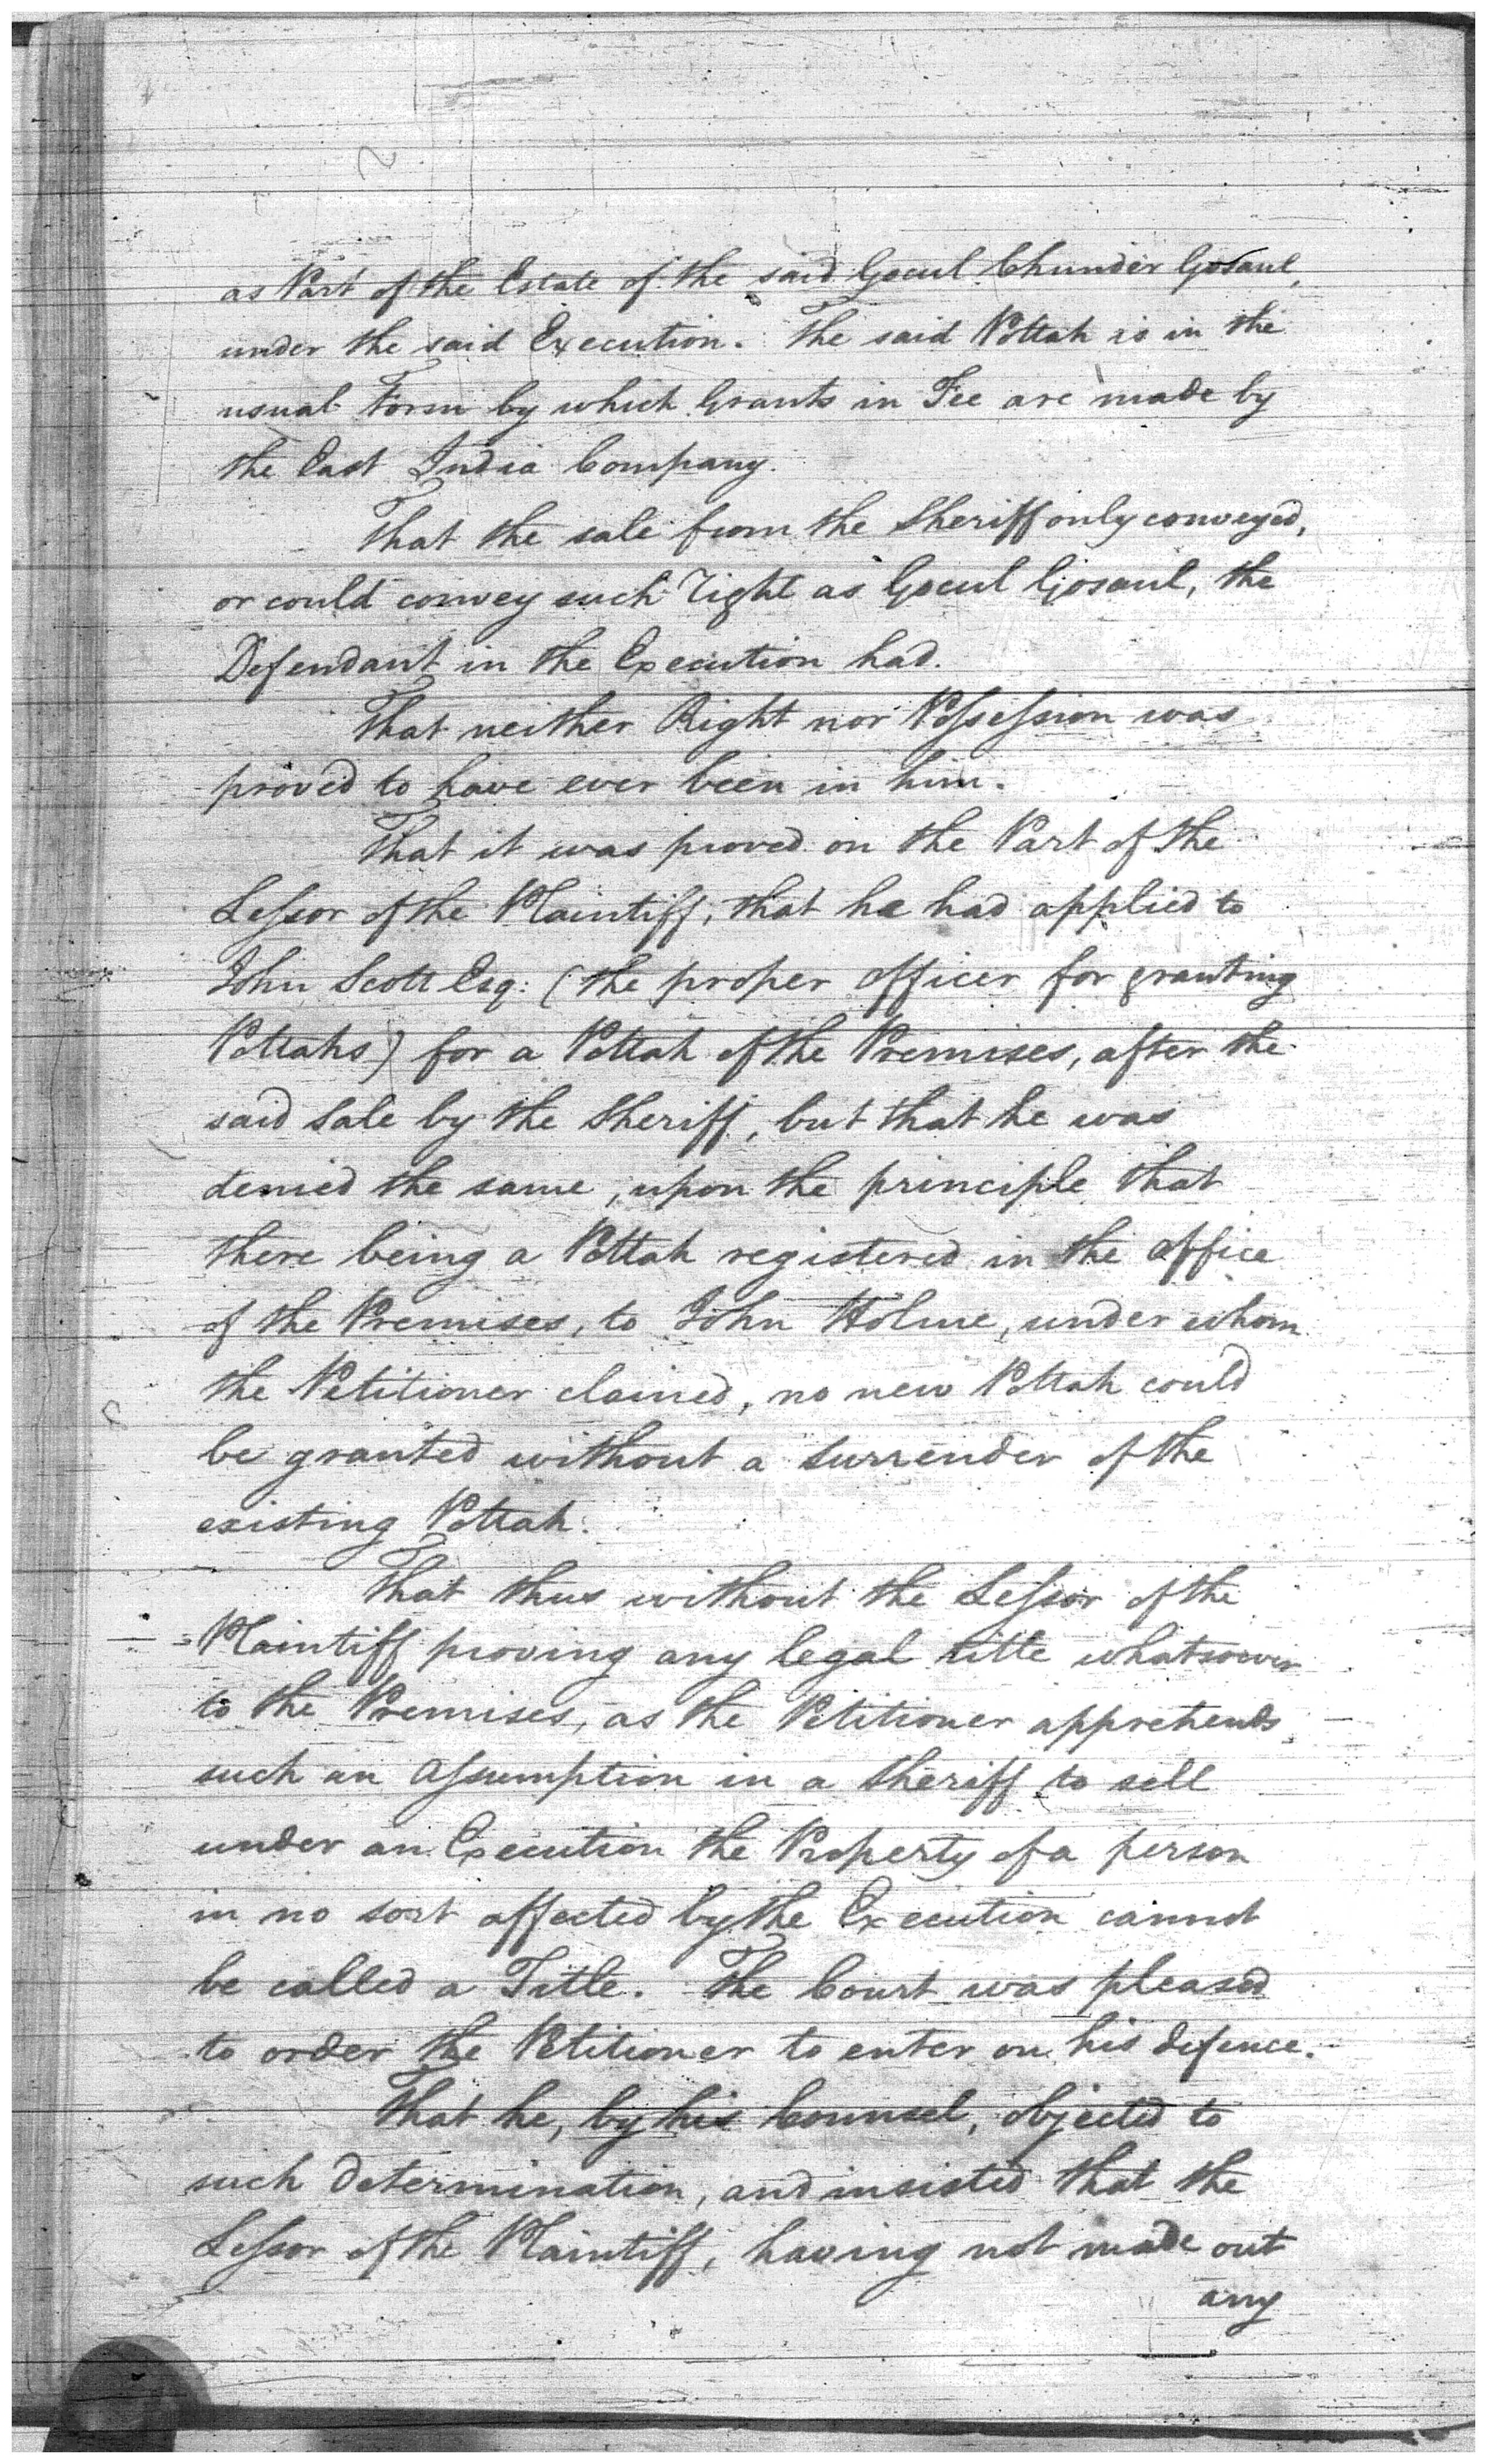 as Part of the Estate of the said Gocul Chunder Gosaul,
under the said Execution. The said Pottah is in the
usual Form by which Grants in Fee are made by
the East India Company.
That the sale from the Sheriff only conveyed,
or could convey such Right as Gocul Gosaul, the
Defendant in the Execution had.
That neither Right nor Poſseſsion was
proved to have ever been in him.
That it was proved on the Part of the
Leſsor of the Plaintiff, that he had applied to
John Scott Esq: (the proper officer for granting
Pottahs) for a Pottah of the Premises, after the
said Sale by the Sheriff, but that he was
denied the same, upon the principle that
there being a Pottah registered in the office
of the Premises, to John Holme, under whom
the Petitioner claimed, no new Pottah could
be granted without a surrender of the
existing Pottah.
That thus without the Leſsor of the
Plaintiff proving any legal title whatsoever
to the Premises, as the Petitioner apprehends
such an Aſsumption in a Sheriff to sell
under an Execution the Property of a person
in no sort affected by the Execution cannot
be called a Title. The Court was pleased
to order the Petitioner to enter on his defence.
That he, by his Counsel, objected to
such determination, and insisted that the
Leſsor of the Plaintiff, having not made out
any